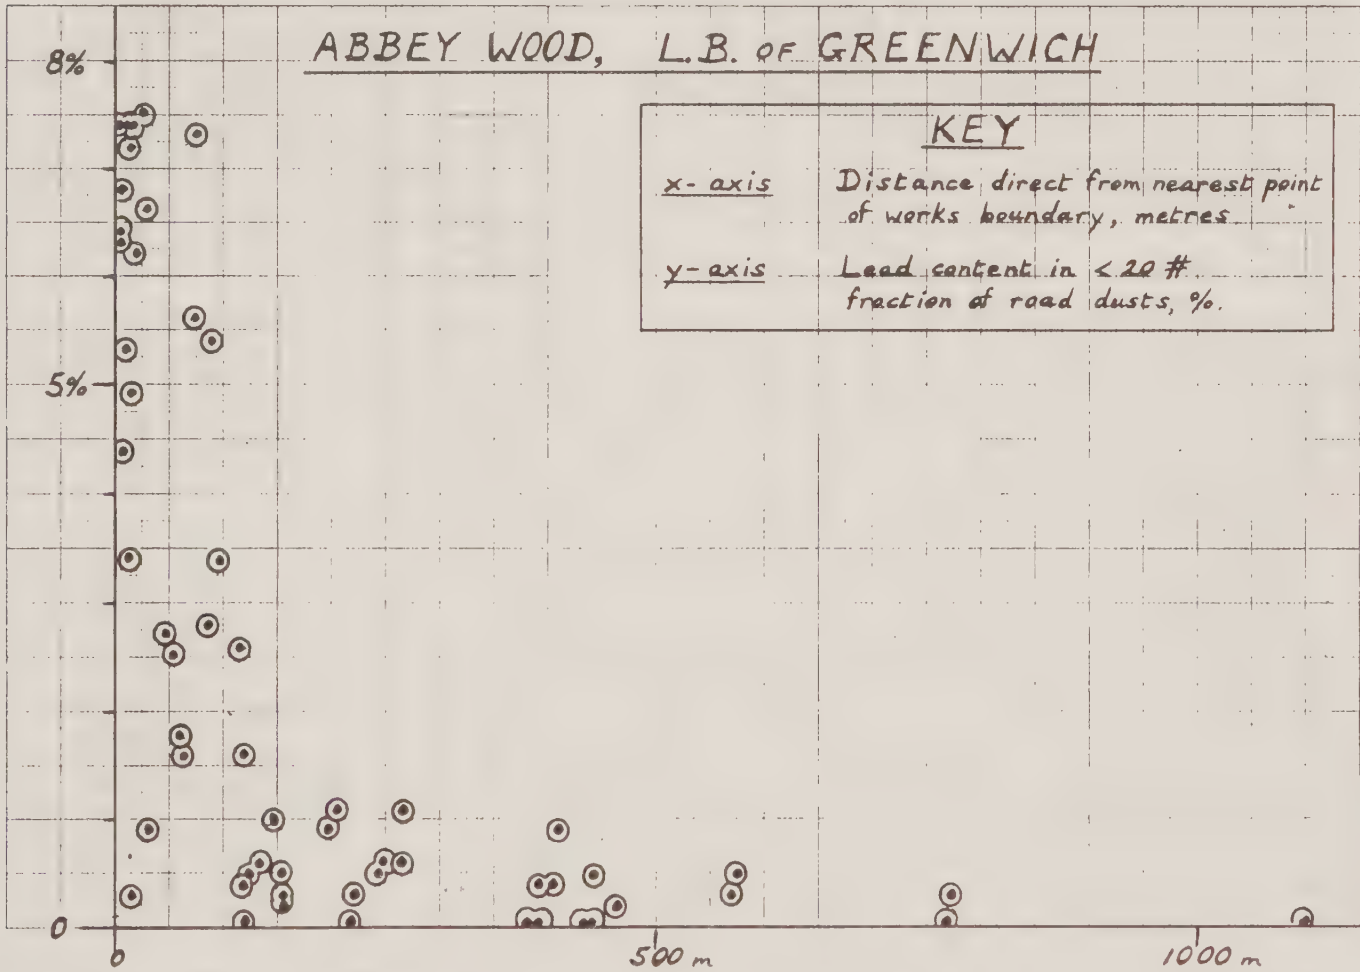 ABBEY WOOD, L.B. OF GREENWICH
8%
KEY
x-axis Distance direct from nearest point
of works boundary, metres
y-axis Lead content in < 20 #
fraction of road dusts, %.
5%
0
0 500 m 1000 m